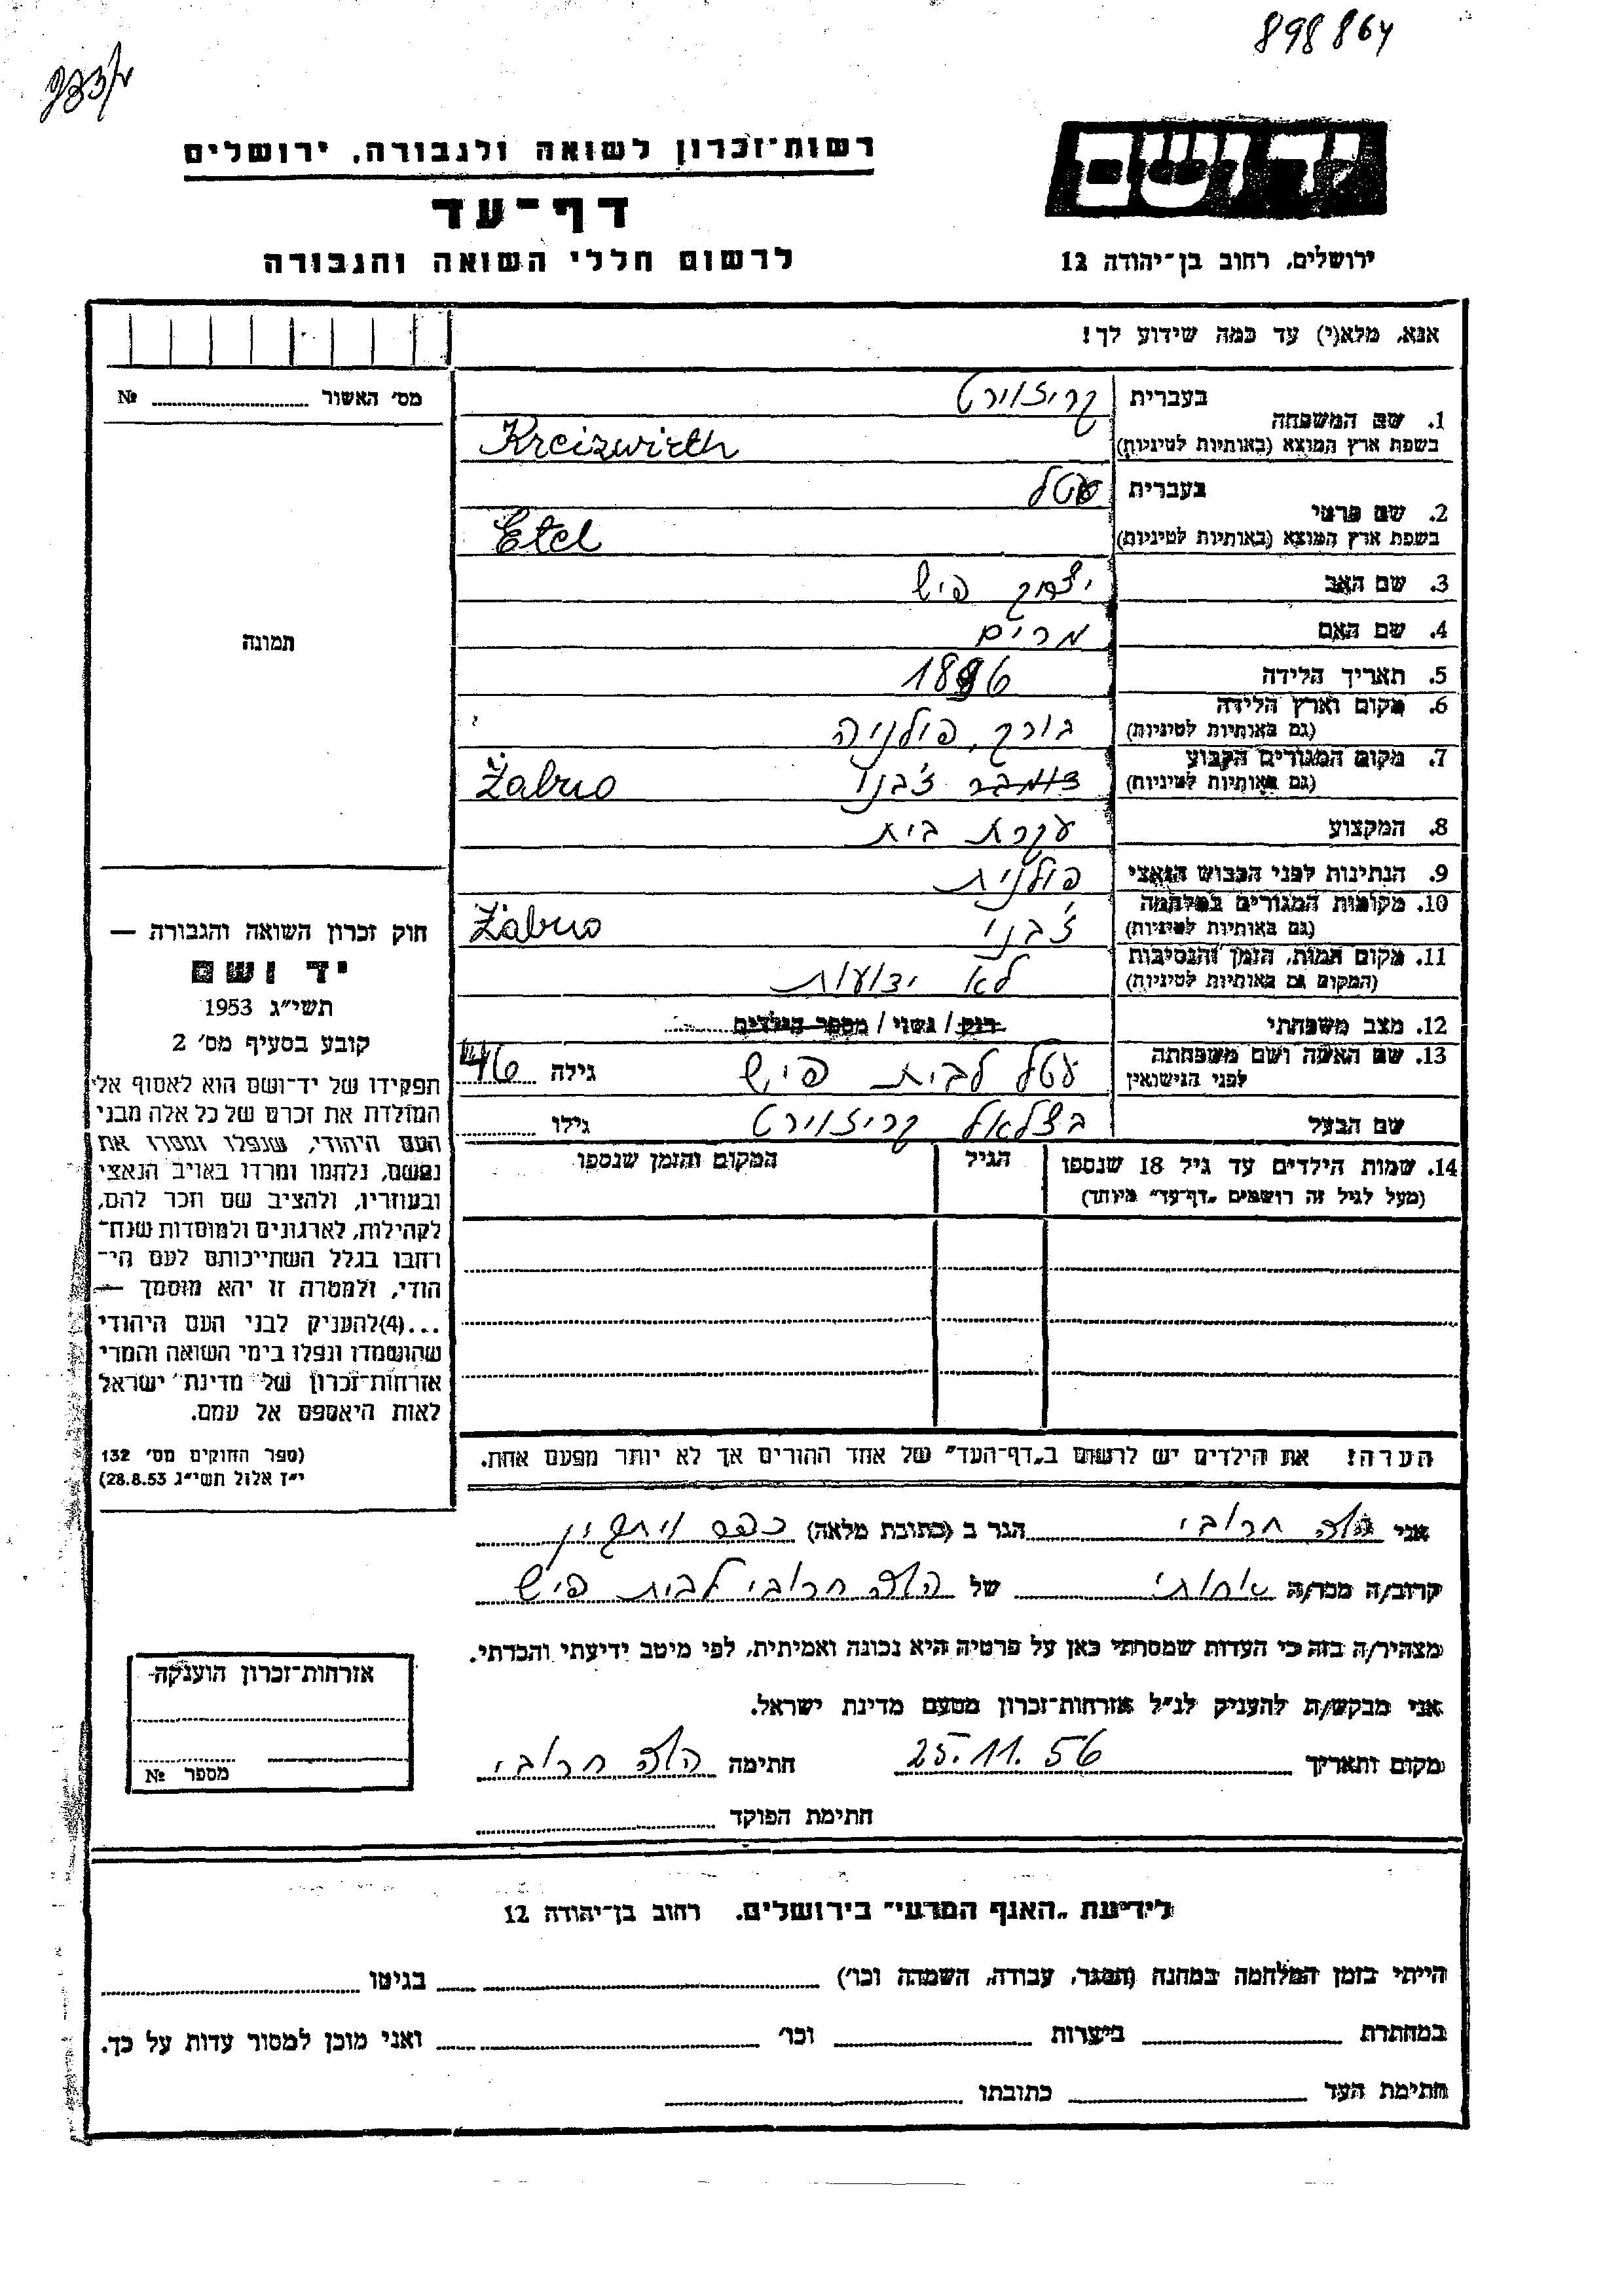 898864
רשות־זכרון לשואה ולגבורה, ירושלים
יד ושם
דף־עד
לרשום חללי השואה והגבורה
ירושלים, רחוב בן־יהודה 12
אנא, מלא(י) עד כמה שידוע לך!
מס׳ האשור № ..........
1. שם המשפחה
בעברית קריזוירט
בשפת ארץ המוצא (באותיות לטיניות) Kreizwirth
2. שם פרטי
בעברית עטל
בשפת ארץ המוצא (באותיות לטיניות) Etel
3. שם האב יצחק פיש
4. שם האם מרים
5. תאריך הלידה 1896
6. מקום וארץ הלידה
(גם באותיות לטיניות) גורק, פולניה
7. מקום המגורים הקבוע
(גם באותיות לטיניות) ז׳בנו Żabno
8. המקצוע עקרת בית
9. הנתינות לפני הכבוש הנאצי פולנית
10. מקומות המגורים במלחמה
(גם באותיות לטיניות) ז׳בנו Żabno
11. מקום המות, הזמן והנסיבות
(המקום גם באותיות לטיניות) לא ידועות
12. מצב משפחתי רווק / נשוי / מספר הילדים ..........
13. שם האשה ושם משפחתה
לפני הנישואין עטל לבית פיש גילה 46
שם הבעל בצלאל קריזוירט גילו ..........
14. שמות הילדים עד גיל 18 שנספו
(מעל לגיל זה רושמים „דף־עד״ מיוחד)
הגיל
המקום והזמן שנספו
תמונה
חוק זכרון השואה והגבורה —
יד ושם
תשי״ג 1953
קובע בסעיף מס׳ 2
תפקידו של יד־ושם הוא לאסוף אל
המולדת את זכרם של כל אלה מבני
העם היהודי, שנפלו ומסרו את
נפשם, נלחמו ומרדו באויב הנאצי
ובעוזריו, ולהציב שם וזכר להם,
לקהילות, לארגונים ולמוסדות שנח־
רבו בגלל השתייכותם לעם הי־
הודי, ולמטרה זו יהא מוסמך —
...(4)להעניק לבני העם היהודי
שהושמדו ונפלו בימי השואה והמרי
אזרחות־זכרון של מדינת ישראל
לאות היאספם אל עמם.
(ספר החוקים מס׳ 132
י״ז אלול תשי״ג 28.8.53)
הערה! את הילדים יש לרשום ב„דף־העד״ של אחד ההורים אך לא יותר מפעם אחת.
אני חרובי הגר ב (כתובת מלאה) כפר ויתקין
קרוב/ה מכר/ה אחותי של חרובי לבית פיש
מצהיר/ה בזה כי העדות שמסרתי כאן על פרטיה היא נכונה ואמיתית, לפי מיטב ידיעתי והכרתי.
אני מבקש/ת להעניק לנ״ל אזרחות־זכרון מטעם מדינת ישראל.
מקום ותאריך 25.11.56 חתימה חרובי
חתימת הפוקד ..........
אזרחות־זכרון הוענקה
מספר №
לידיעת „האגף המדעי״ בירושלים, רחוב בן־יהודה 12
הייתי בזמן המלחמה במחנה (הסגר, עבודה, השמדה וכו׳) .......... בגיטו ..........
במחתרת .......... ביערות .......... וכו׳ .......... ואני מוכן למסור עדות על כך.
חתימת העד .......... כתובתו ..........